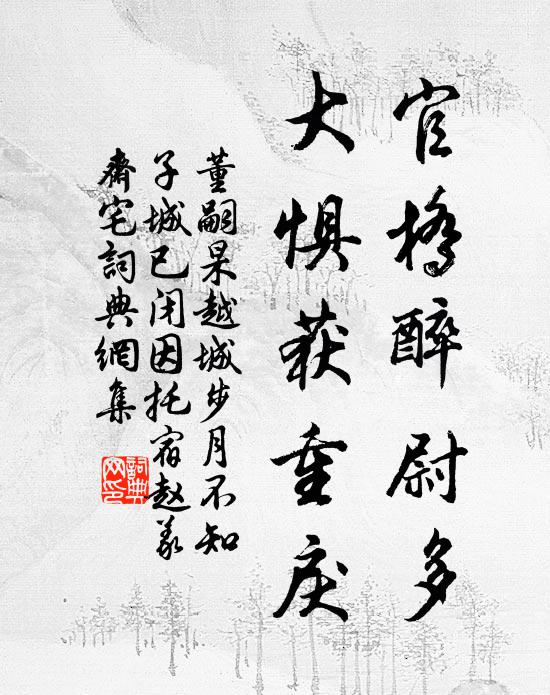 官橋醉尉多
大惧获重戾
董嗣杲越城步月不知
子城已闭因托宿赵义
齋宅詞典網集
詞典
网印